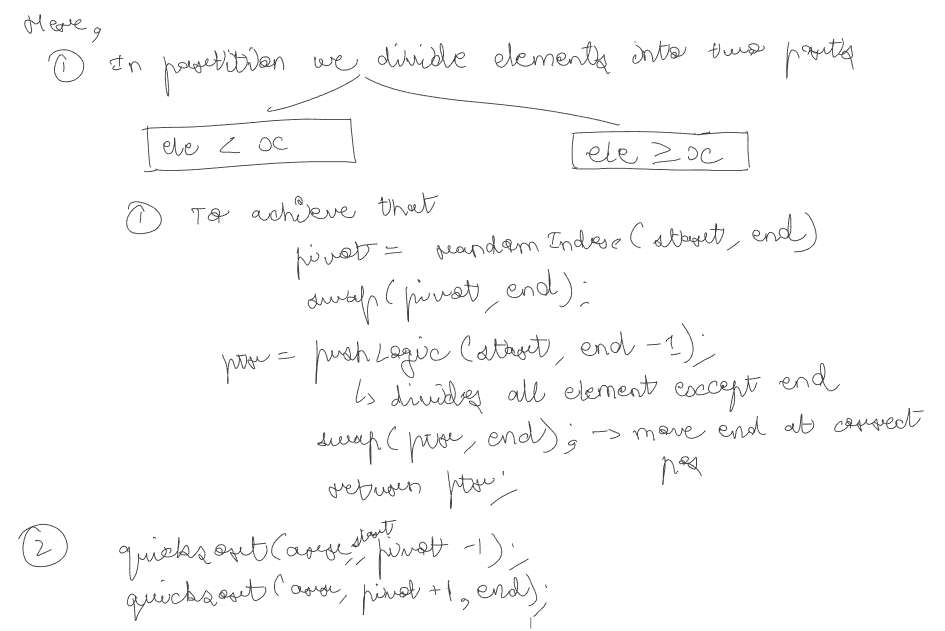 Here,
① In partition we divide elements into two parts
ele < x
ele ≥ x
① To achieve that
pivot = random Index (start, end)
swap (pivot, end);
ptr = push Logic (start, end -1);
↳ divides all element except end
swap (ptr, end); → move end at correct
pos
return ptr;
② quicksort (arr, start, pivot -1);
quicksort (arr, pivot +1, end);